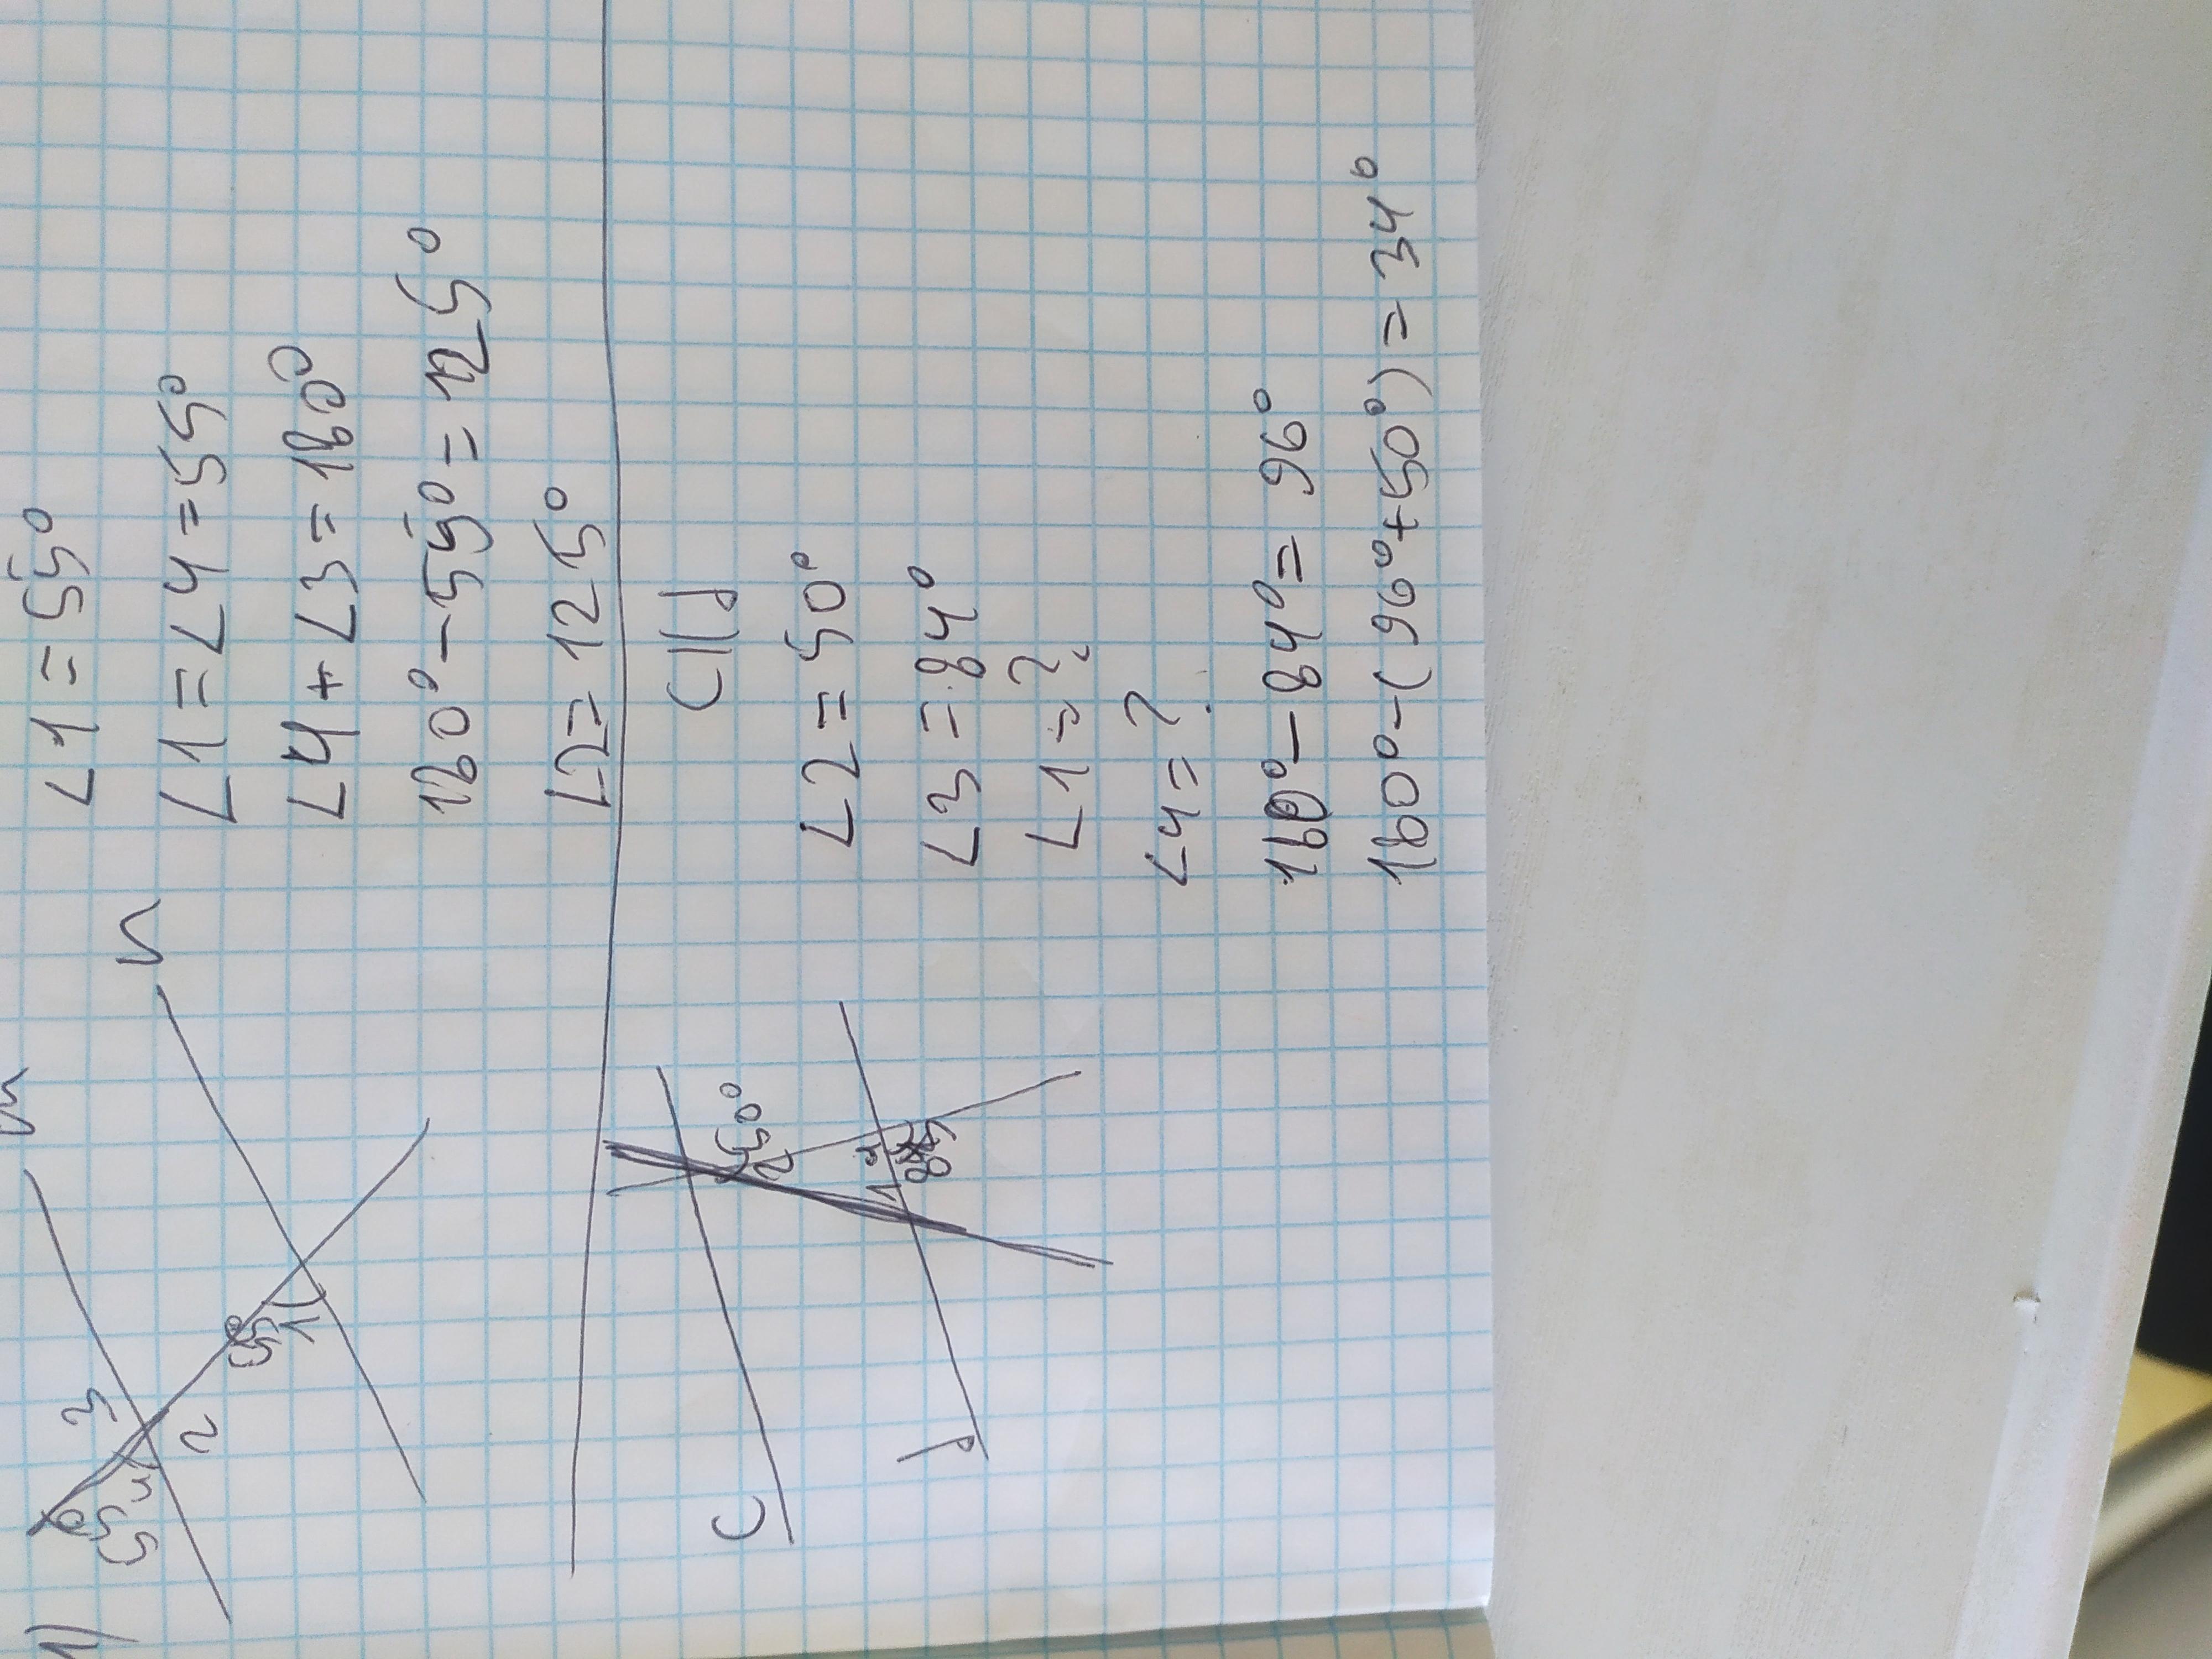 1)
m
n
3
55° 4
2
55°
1
∠1 = 55°
∠1 = ∠4 = 55°
∠4 + ∠3 = 180°
180° - 55° = 125°
∠2 = 125°
c
d
50°
2
1
4
84
3
c||d
∠2 = 50°
∠3 = 84°
∠1 = ?
∠4 = ?
180° - 84° = 96°
180° - (96° + 50°) = 34°